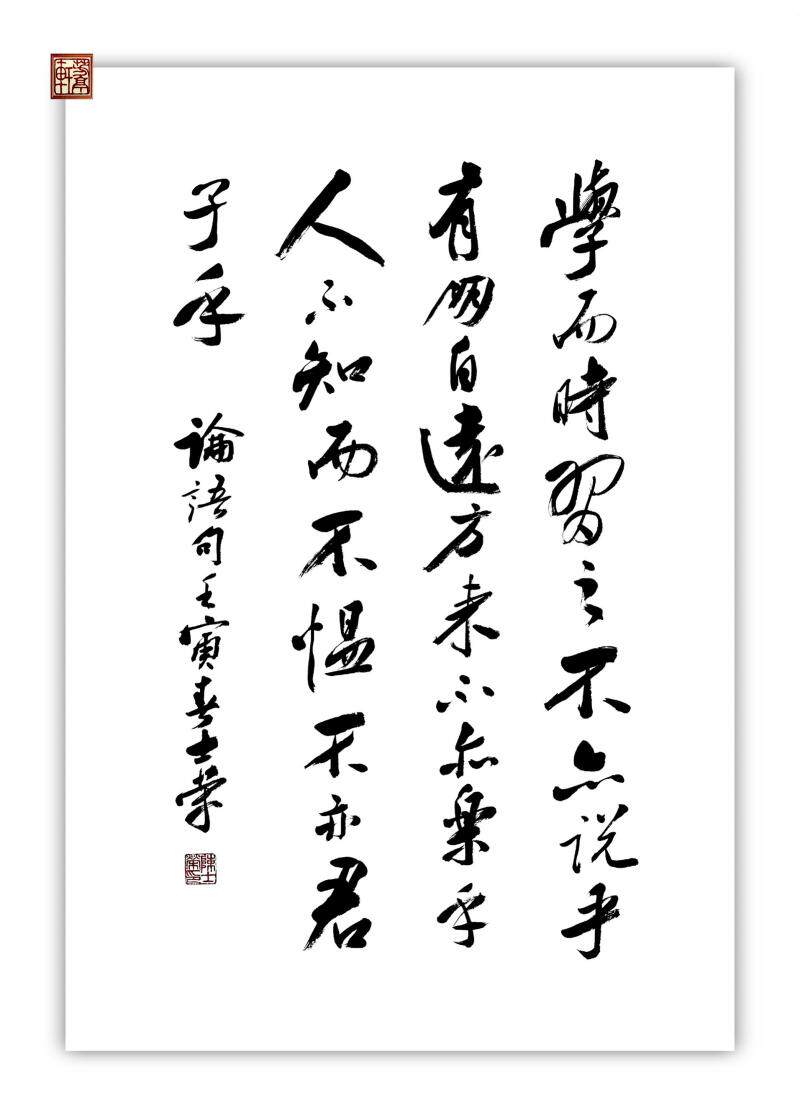 學而時習之不亦説乎
有朋自遠方来不亦樂乎
人不知而不愠不亦君
子乎 論語句壬寅春士榮
陳士榮印